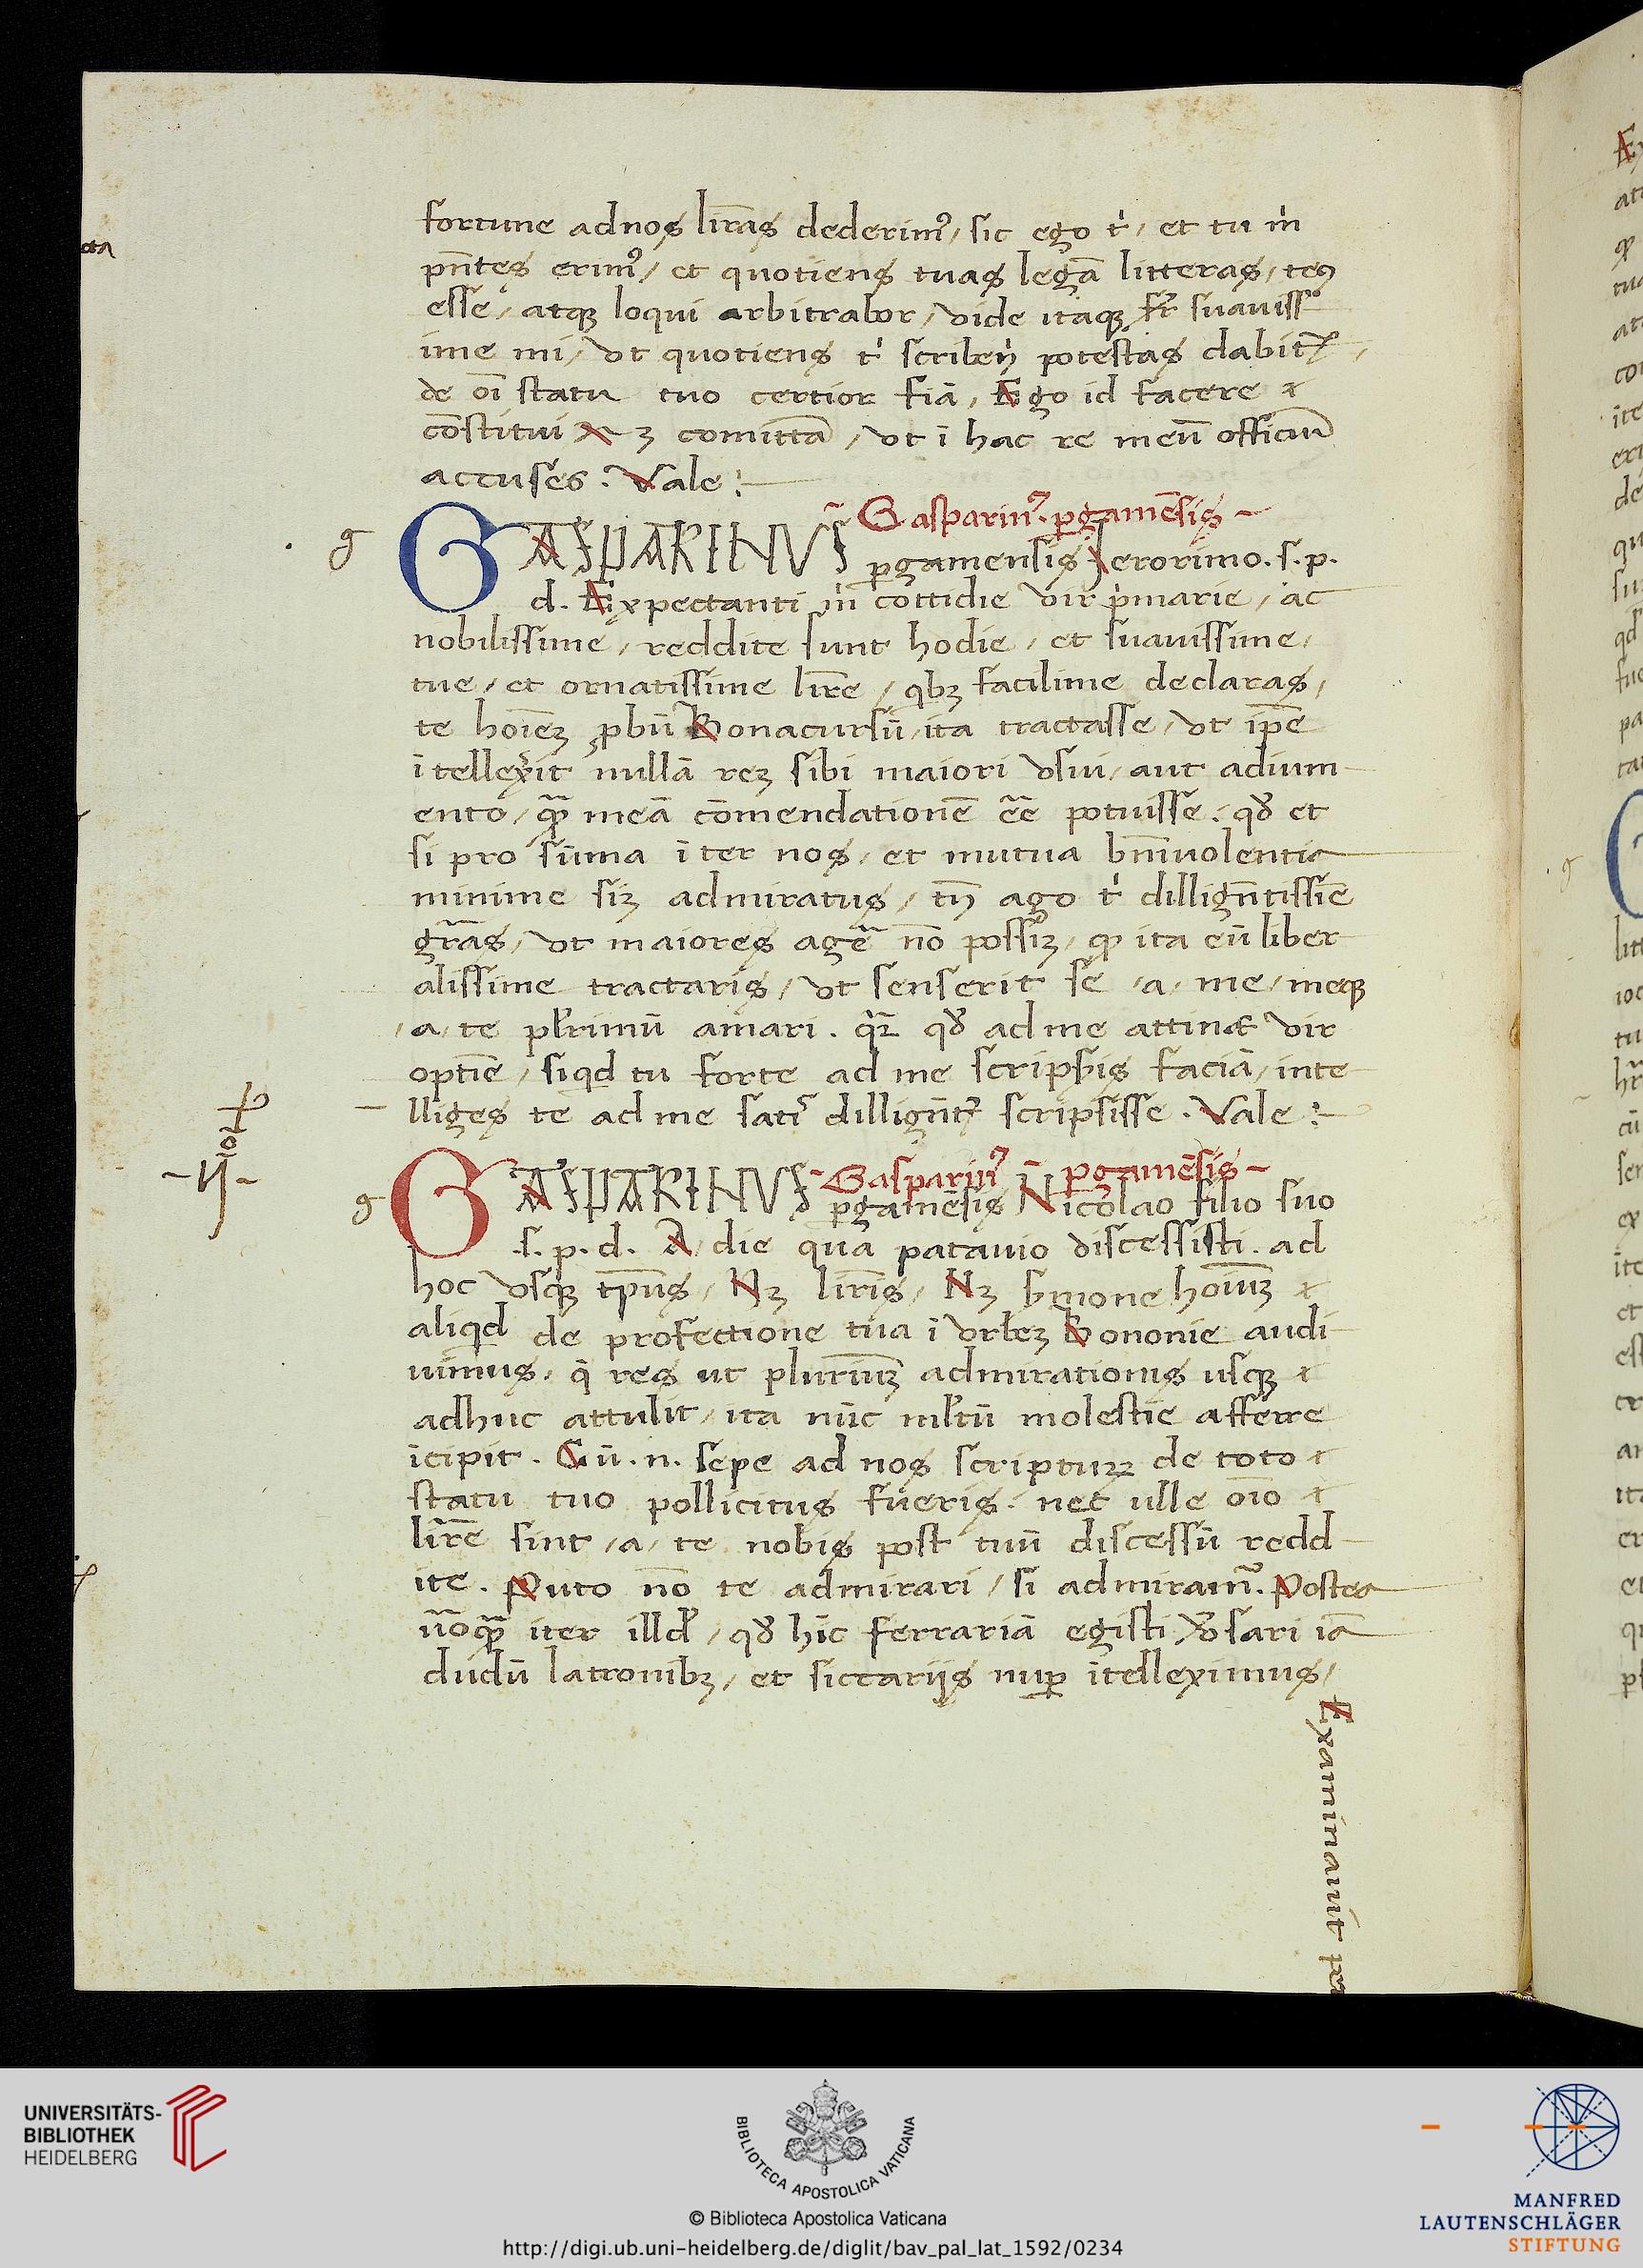 fortune ad nos lr̄as dederim⁹/ sic ego t̍/ et tu m̍
pn̄tes erim⁹/ et quotiens tuas legā litteras/
esse/ atqꝫ loqui arbitrabor/ vide itaqꝫ fr̄ suauiss
ime mi/ vt quotiens t̍ scribendi potestas dabit᷑/
de oī statu tuo certior fiā, Ego id facere
cōstitui comittā/ vt ī hac re meū officiū
accuses. Vale:
Gasparin⁹. ꝑgamēsis
g GASPARINUS ꝑgamensis Jerorimo. s. p.
d. Expectanti m̍ cottidie vir pͥmarie/ ac
nobilissime/ reddite sunt hodie/ et suauissime/
tue/ et ornatissime lr̄e/ qͥbꝫ facilime declaras/
te hoīeꝫ ꝓbū Bonacursū/ ita tractasse/ vt ip̄e
ītellexit nullā reꝫ sibi maiori vsui/ aut adium
ento/ qᷓꝫ meā cōmendationē eē potuisse. qđ et
si pro sūma īter nos/ et mutua bn̄iuolentia
minime siꝫ admiratus/ tn̄ ago t̍ dillign̄tissīe
gr̄as/ vt maiores agē nō possiꝫ/ ꝙ ita eū liber
alissime tractaris/ vt senserit se /a/ me/ meqꝫ
/a/ te plr̍imū amari. qͣꝛ qđ ad me attinꝫ vir
optīe/ siqͥd tu forte ad me scripsis faciā/ inte
lliges te ad me satꝭ dillign̄t᷑ scripsisse. Vale:
Gasparin⁹ ꝑgamēsis
g GASPARINUS ꝑgamēsis Nicolao filio suo
s. p. d. A die qua patauio discessisti. ad
hoc vsqꝫ tp̄us/ Nꝫ lr̄is/ Nꝫ hoīuꝫ
aliqͥd de profectione tua ī vrbeꝫ Bononie audi
uimus/ q̄ res ut plurīuꝫ admirationis usqꝫ
adhuc attulit/ ita nūc ml̍tū molestie afferre
īcipit. Cū. n. sepe ad nos scripturꝫ de toto
statu tuo pollicitus fueris. nec ulle oīo
lr̄e sint /a/ te nobis post tuū discessū redd
ite. Puto nō te admirari/ si admiram᷑. Postea
ūoqᷓꝫ iter illđ/ qđ hīc ferrariā egisti v̄sari iā
dudū latronibꝫ/ et siccarijs nuꝑ ītelleximus/
Examinauit
UNIVERSITÄTS-
BIBLIOTHEK
HEIDELBERG
BIBLIOTECA APOSTOLICA VATICANA
© Biblioteca Apostolica Vaticana
http://digi.ub.uni-heidelberg.de/diglit/bav_pal_lat_1592/0234
MANFRED
LAUTENSCHLÄGER
STIFTUNG